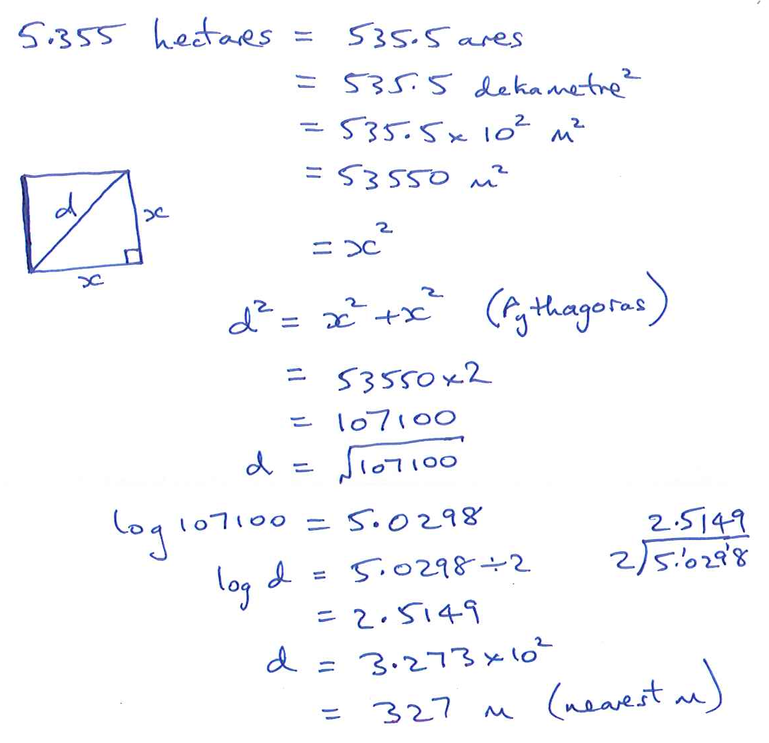 5.355 hectares = 535.5 ares
= 535.5 dekametre²
= 535.5 × 10² m²
= 53550 m²
d
x
x
= x²
d² = x² + x² (Pythagoras)
= 53550 × 2
= 107100
d = √107100
log 107100 = 5.0298
2.5149
log d = 5.0298 ÷ 2
2)5.¹029¹8
= 2.5149
d = 3.273 × 10²
= 327 m (nearest m)